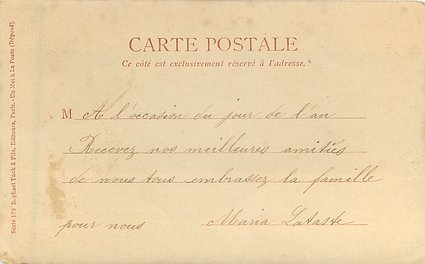 CARTE POSTALE
Ce côté est exclusivement réservé à l'adresse.
M A l'occasion du jour de l'an
Recevez nos meilleures amitiés
de nous tous embrassez la famille
pour nous Maria Lataste
Série 179 Raphael Tuck & Fils, Editeurs, Paris. - Un Mot à La Poste (Déposé).